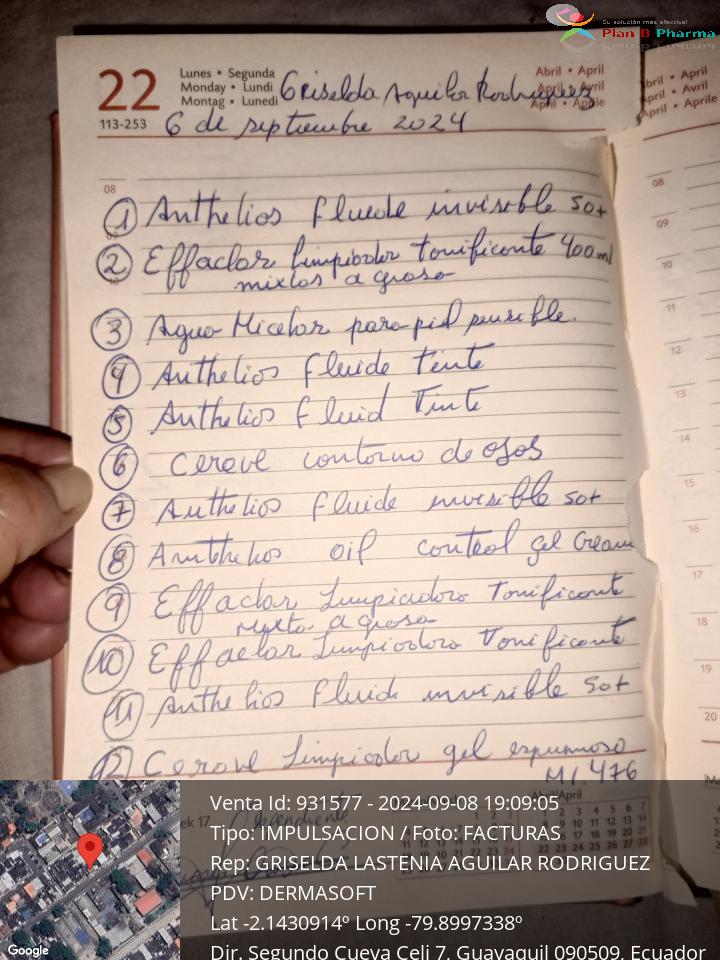 Su solución más efectiva!
Plan B Pharma
22
Lunes • Segunda
Monday • Lundi
Montag • Lunedi
Abril • April
April • Avril
April • Aprile
Griselda Aguilar Rodriguez
113-253
6 de septiembre 2024
Abril • April
April • Avril
April • Aprile
08
① Anthelios fluede invisible 50+
② Effaclar limpiador tonificante 400 ml
mixtos a grasa
③ Agua Micelar para piel sensible.
④ Anthelios fluide tinte
⑤ Anthelios fluid Tinte
⑥ Cerave contorno de ojos
⑦ Anthelios fluide invisible 50+
⑧ Anthelios oil control gel Cream
⑨ Effaclar Limpiadora Tonificante
mixta a grasa
⑩ Effaclar Limpiadora Tonificante
⑪ Anthelios fluid invisible 50+
⑫ Cerave Limpiador gel espumoso
Ml. 476
08
09
10
11
12
13
14
15
16
17
18
19
20
Venta Id: 931577 - 2024-09-08 19:09:05
Tipo: IMPULSACION / Foto: FACTURAS
Rep: GRISELDA LASTENIA AGUILAR RODRIGUEZ
PDV: DERMASOFT
Lat -2.1430914º Long -79.8997338º
Dir. Segundo Cueva Celi 7, Guayaquil 090509, Ecuador
Google